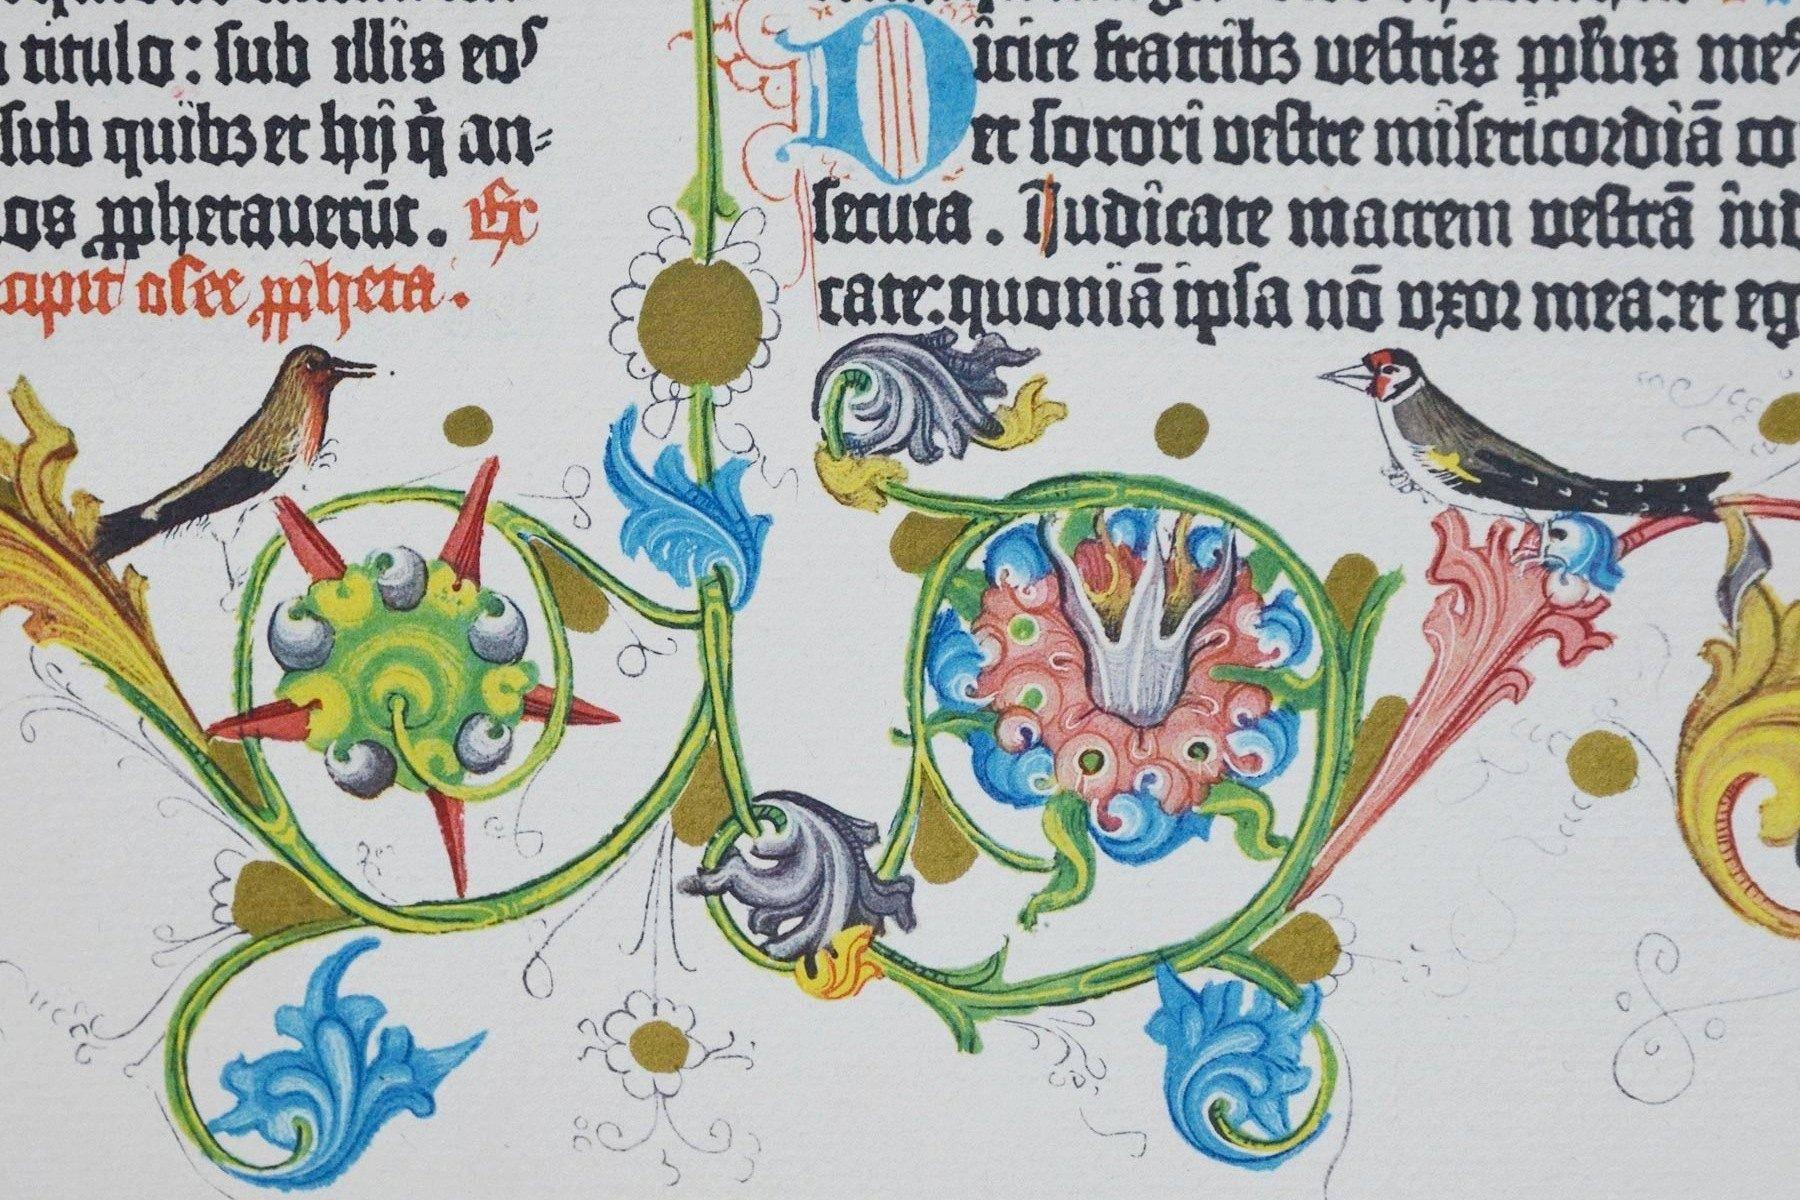 titulo: sub illis eoꝰ
sub quibꝫ et hij q̇ an⸗
os ꝓphetauerūt. Ex
cipit osee ꝓpheta.
Dicite fratribꝫ vestris ꝓpl̕us meꝰ
et sorori vestre misericordiā co
secuta. Judicate matrem vestrā iud
cate: quoniā ipsa nō uxor mea: et eg